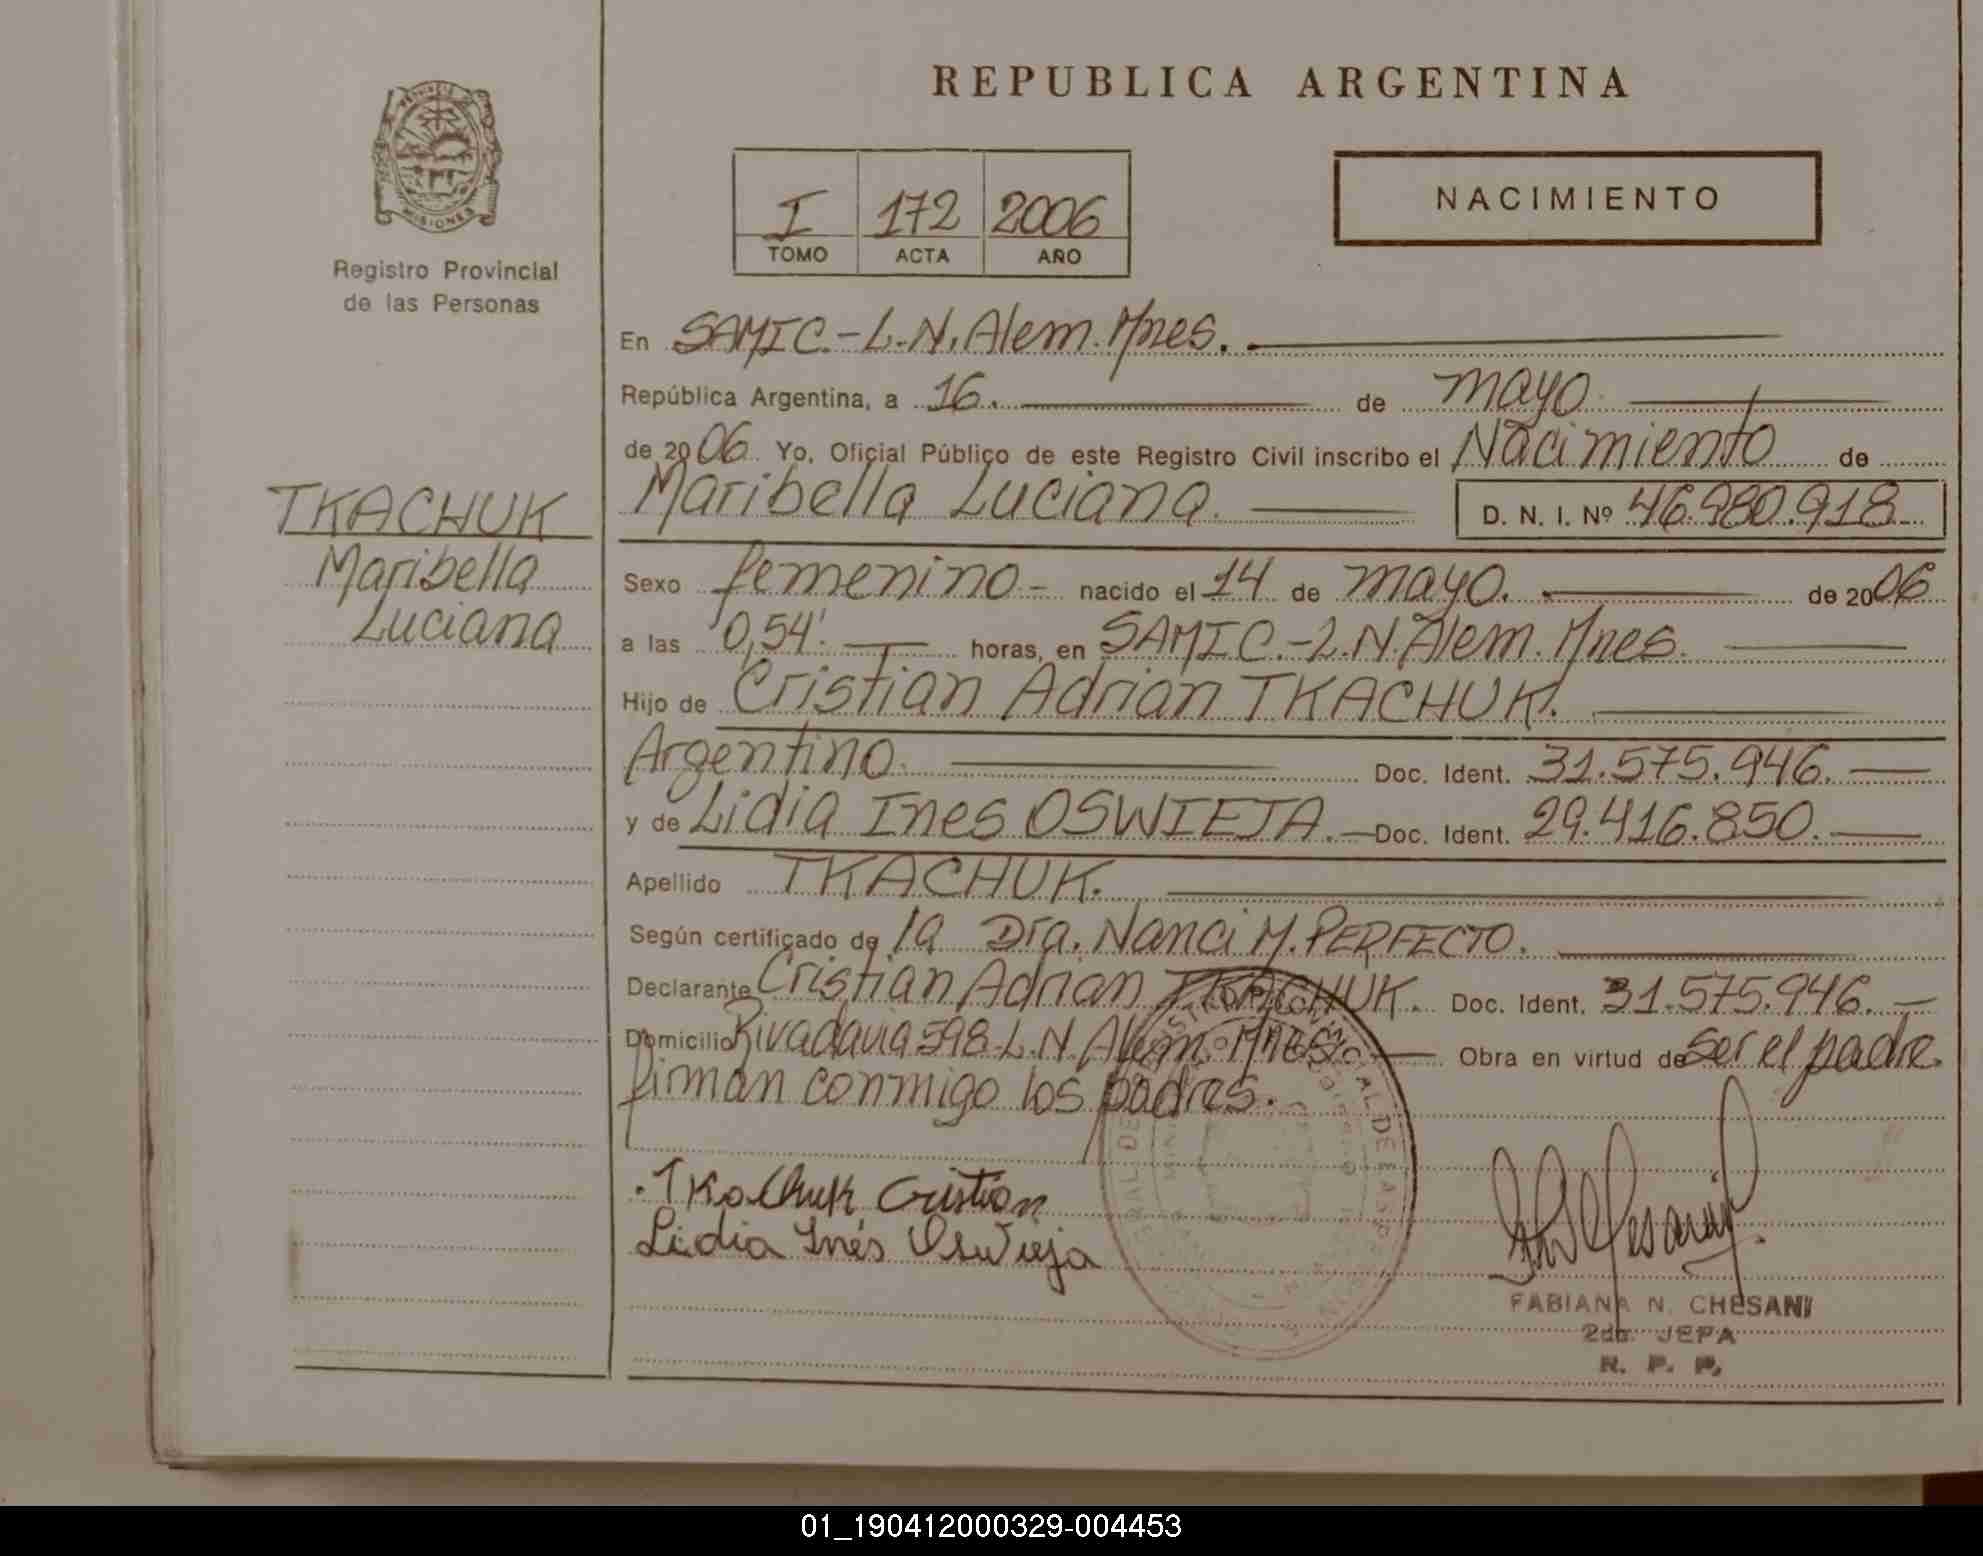 REPUBLICA ARGENTINA
PROVINCIA DE
MISIONES
Registro Provincial
de las Personas
I 172 2006
TOMO ACTA AÑO
NACIMIENTO
En SAMIC.-L.N.Alem.Mnes.
República Argentina, a 16. de mayo
de 2006 Yo, Oficial Público de este Registro Civil inscribo el Nacimiento de
Maribella Luciana D. N. I. Nº 46.980.918
TKACHUK
Maribella
Luciana
Sexo femenino- nacido el 14 de mayo. de 2006
a las 0,54'. horas, en SAMIC.-L.N.Alem.Mnes.
Hijo de Cristian Adrian TKACHUK.
Argentino. Doc. Ident. 31.575.946.
y de Lidia Ines OSWIEJA. Doc. Ident. 29.416.850.
Apellido TKACHUK.
Según certificado de la Dra. Nanci M. PERFECTO.
Declarante Cristian Adrian TKACHUK. Doc. Ident. 31.575.946.
Domicilio Rivadavia 598-L.N.Alem. Mnes. Obra en virtud de ser el padre.
firman conmigo los padres.
Tkachuk Cristian
Lidia Inés Oswieja
FABIANA N. CHESANI
2da. JEFA
R. P. P.
01_190412000329-004453